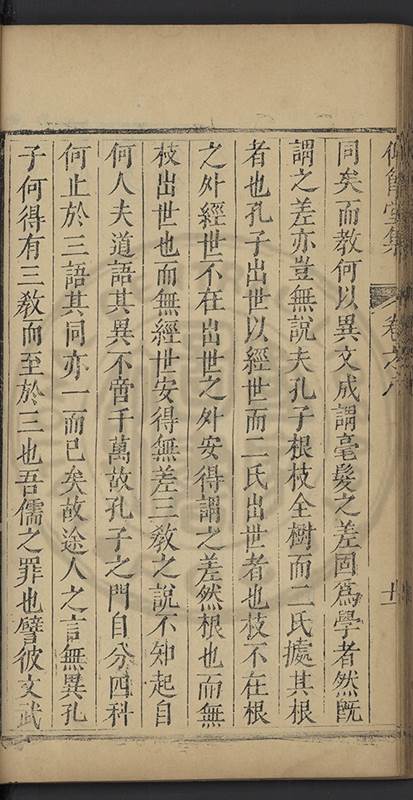 仰節堂集
卷之八
十一
同矣而教何以異文成謂毫髮之差固為學者然既
謂之差亦豈無說夫孔子根枝全樹而二氏處其根
者也孔子出世以經世而二氏出世者也枝不在根
之外經世不在出世之外安得謂之差然根也而無
枝出世也而無經世安得無差三教之說不知起自
何人夫道語其異不啻千萬故孔子之門自分四科
何止於三語其同亦一而已矣故途人之言無異孔
子何得有三教而至於三也吾儒之罪也譬彼文武